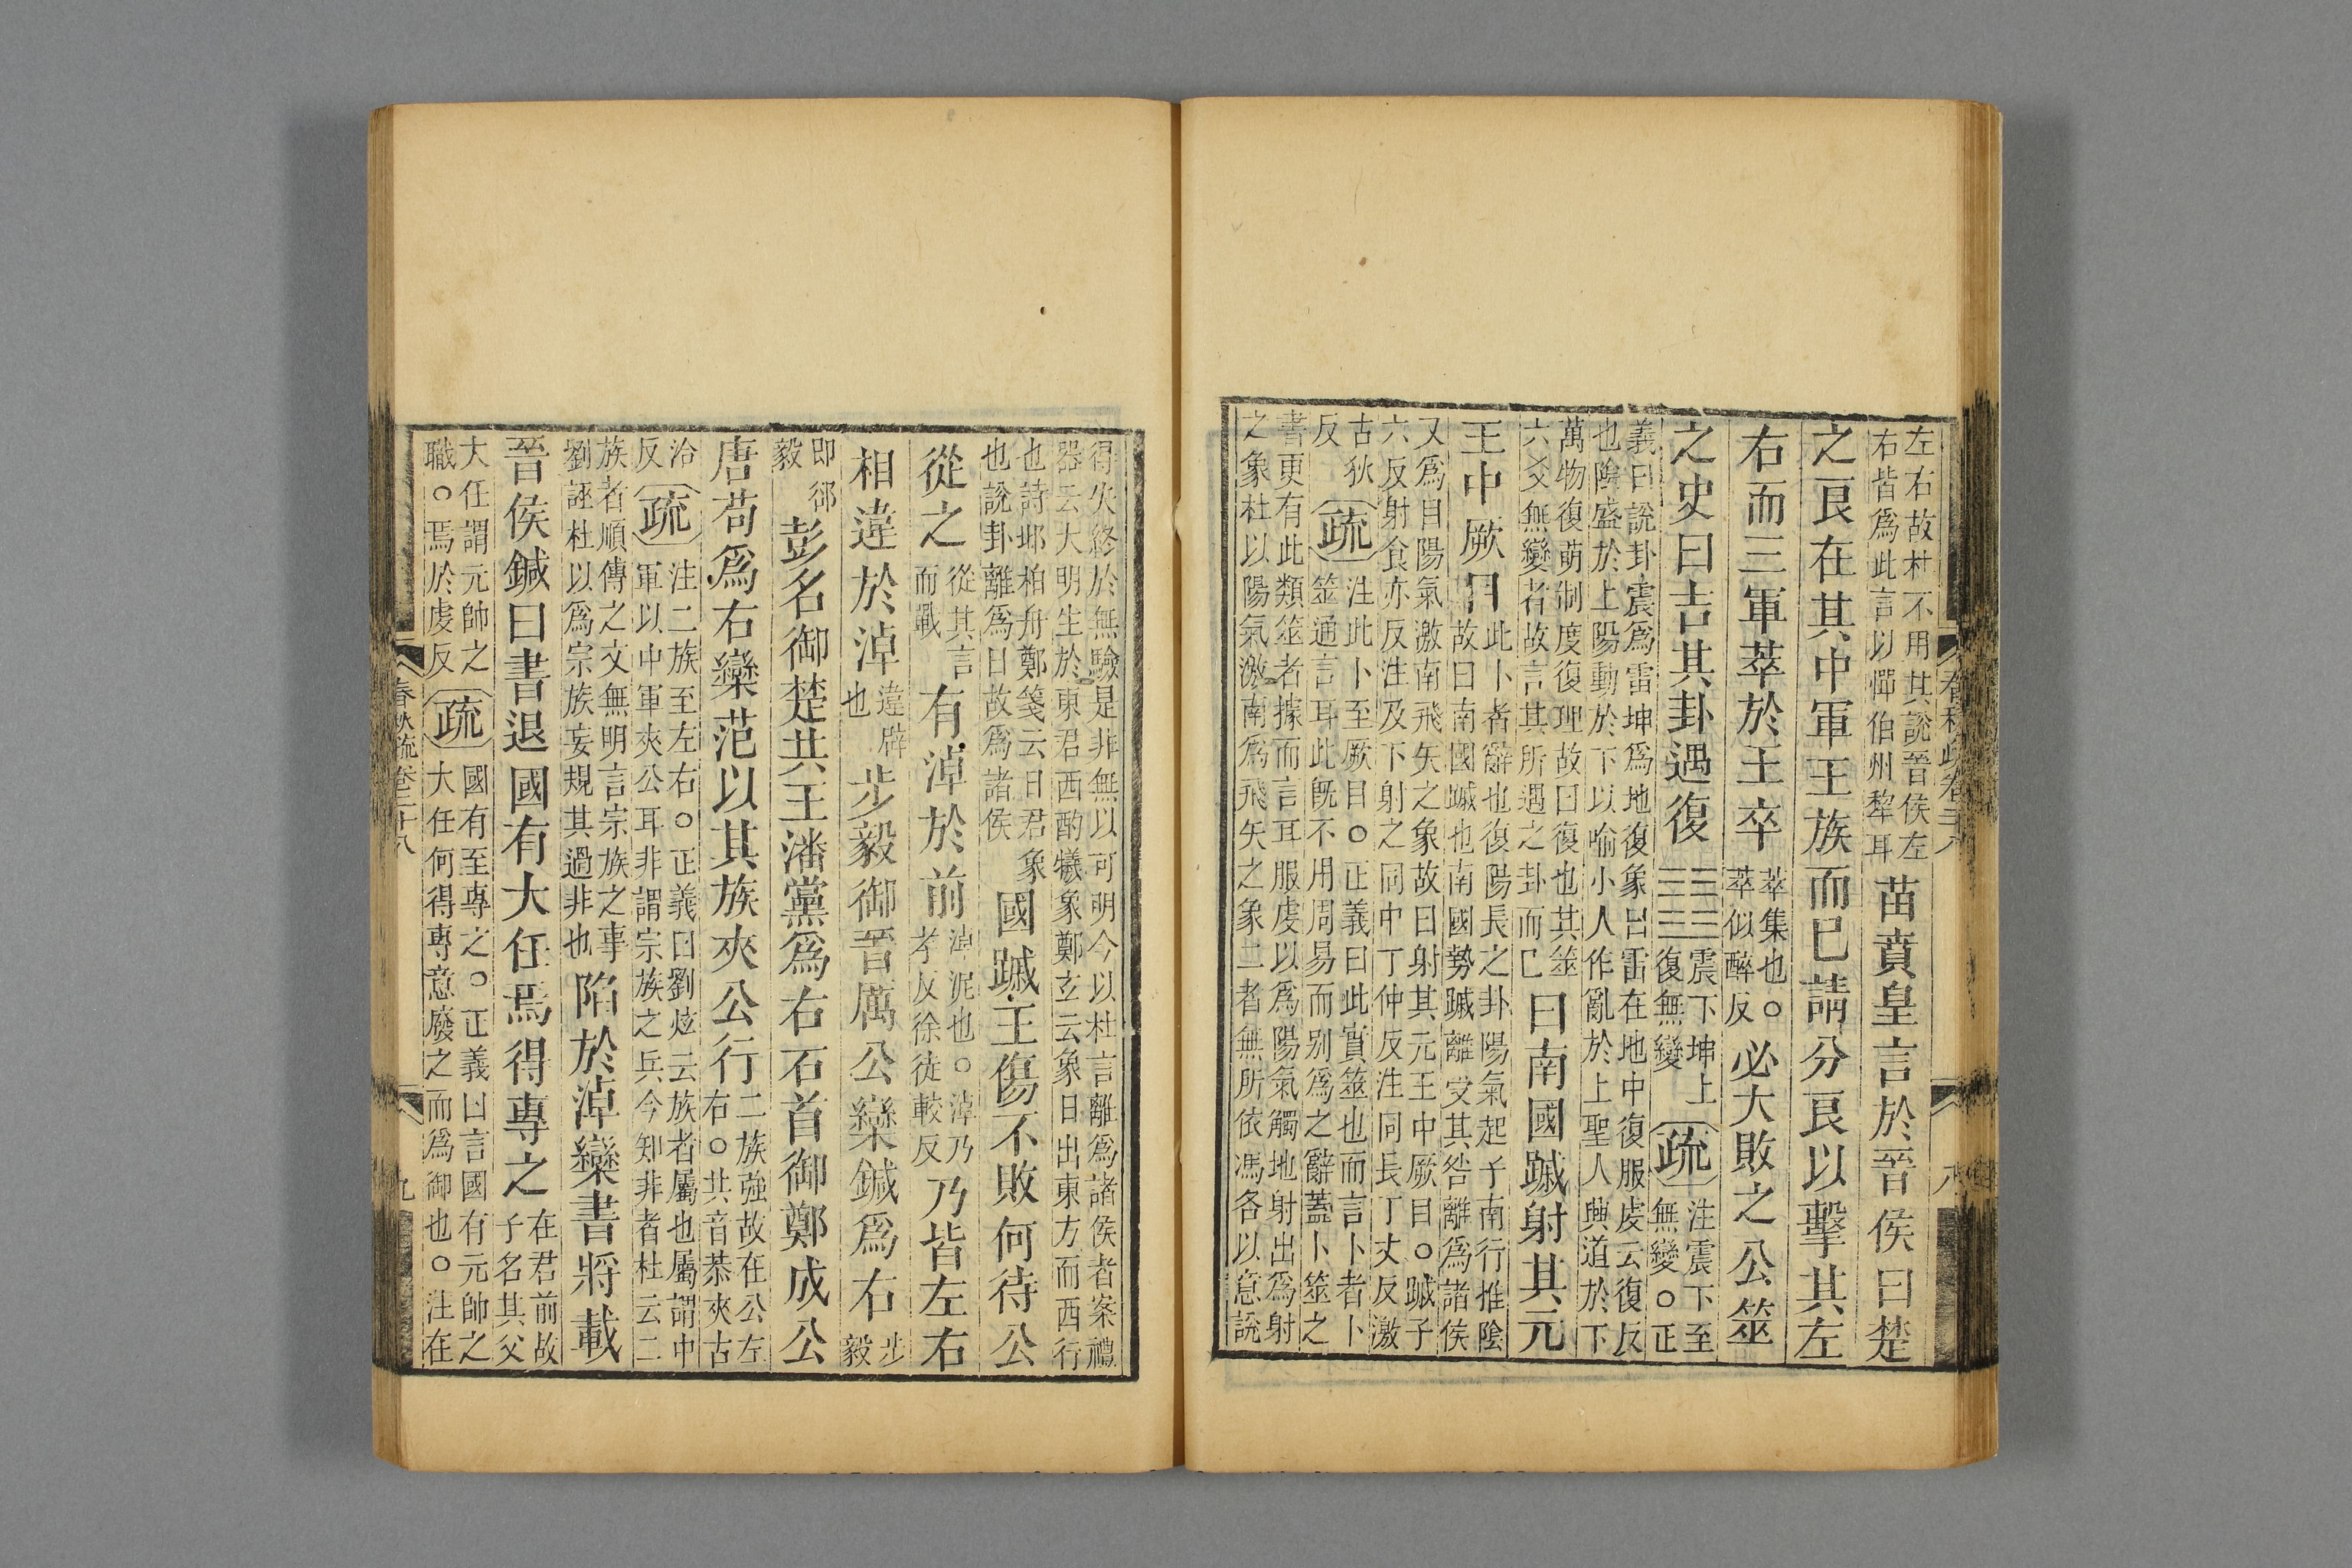 左右故杜不用其說晉侯左
右皆爲此言以憚伯州犂耳
苗賁皇言於晉侯曰楚
之良在其中軍王族而已請分良以擊其左
右而三軍萃於王卒
萃集也○
萃似醉反
必大敗之公筮
之史曰吉其卦遇復
震下坤上
復無變
疏
注震下至
無變○正
義曰說卦震爲雷坤爲地復象曰雷在地中復服虔云復反
也陰盛於上陽動於下以喻小人作亂於上聖人與道於下
萬物復萌制度復理故曰復也其筮
六爻無變者故言其所遇之卦而已
曰南國䠞射其元
王中厥目
此卜者辭也復陽長之卦陽氣起子南行推陰
故曰南國䠞也南國勢䠞離受其咎離爲諸侯
又爲目陽氣激南飛矢之象故曰射其元王中厥目○䠞子
六反射食亦反注及下射之同中丁仲反注同長丁丈反激
古狄
反
疏
注此卜至厥目○正義曰此實筮也而言卜者卜
筮通言耳此旣不用周易而别爲之辭蓋卜筮之
書更有此類筮者據而言耳服虔以爲陽氣觸地射出爲射
之象杜以陽氣激南爲飛矢之象二者無所依馮各以意說
得失終於無驗是非無以可明今以杜言離爲諸侯者案禮
器云大明生於東君西酌犧象鄭玄云象日出東方而西行
也詩邶柏舟鄭箋云日君象
也說卦離爲日故爲諸侯
國䠞王傷不敗何待公
從之
從其言
而戰
有淖於前
淖泥也○淖乃
孝反徐徒較反
乃皆左右
相違於淖
違辟
也
步毅御晉厲公欒鍼爲右
步
毅
即郤
毅
彭名御楚共王潘黨爲右石首御鄭成公
唐苟爲右欒范以其族夾公行
二族強故在公左
右○共音恭夾古
洽
反
疏
注二族至左右○正義曰劉炫云族者屬也屬謂中
軍以中軍夾公耳非謂宗族之兵今知非者杜云二
族者順傳之文無明言宗族之事
劉誣杜以爲宗族妄規其過非也
陷於淖欒書將載
晉侯鍼曰書退國有大任焉得專之
在君前故
子名其父
大任謂元帥之
職○焉於虔反
疏
國有至專之○正義曰言國有元帥之
大任何得專意廢之而爲御也○注在
春秋疏卷二十八
九